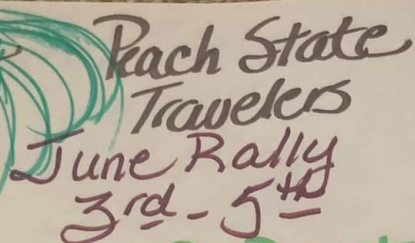 Peach State
Travelers
June Rally
3rd - 5th